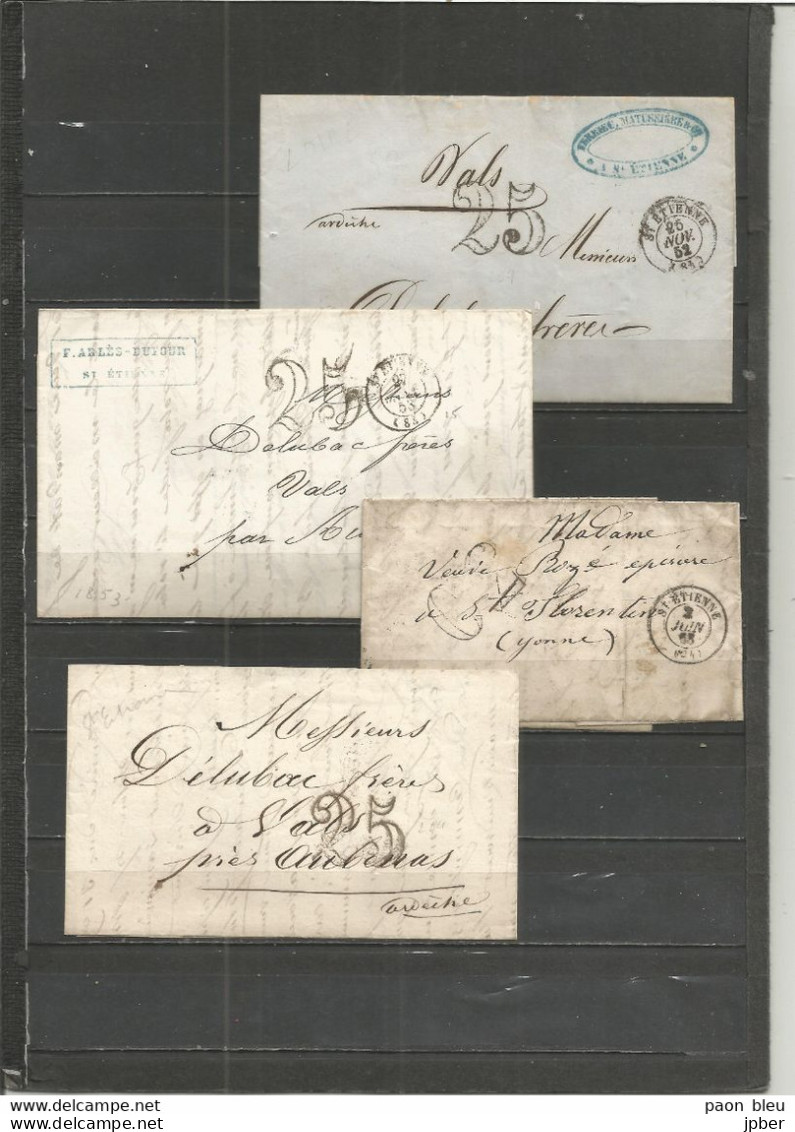 MATUSSIÈRE & Cie
A St ÉTIENNE
Vals
25
ardèche
Messieurs
St ETIENNE
25
NOV.
52
(84)
frères
F. ARLÈS-DUFOUR
St ÉTIENNE
25
St ETIENNE
53
(84)
15
Delubac frères
Vals
par
1853.
Madame
Veuve Rozé epicière
à St Florentin
(yonne)
St ETIENNE
2
JUIN
(84)
St Etienne
Messieurs
Délubac frères
à Vals
25
près Aubenas
ardèche
www.delcampe.net
paon bleu
jpber